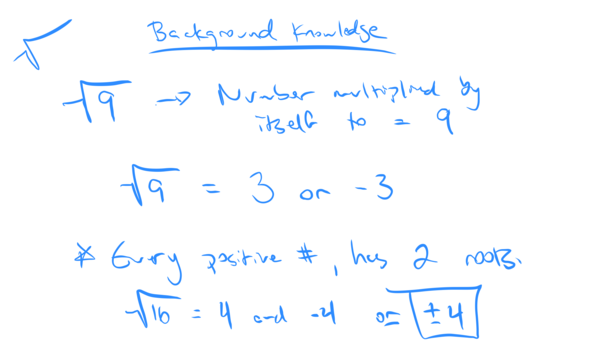 √ Background Knowledge
√9 → Number multiplied by
itself to = 9
√9 = 3 or -3
* Every positive #, has 2 roots.
√16 = 4 and -4 or ±4